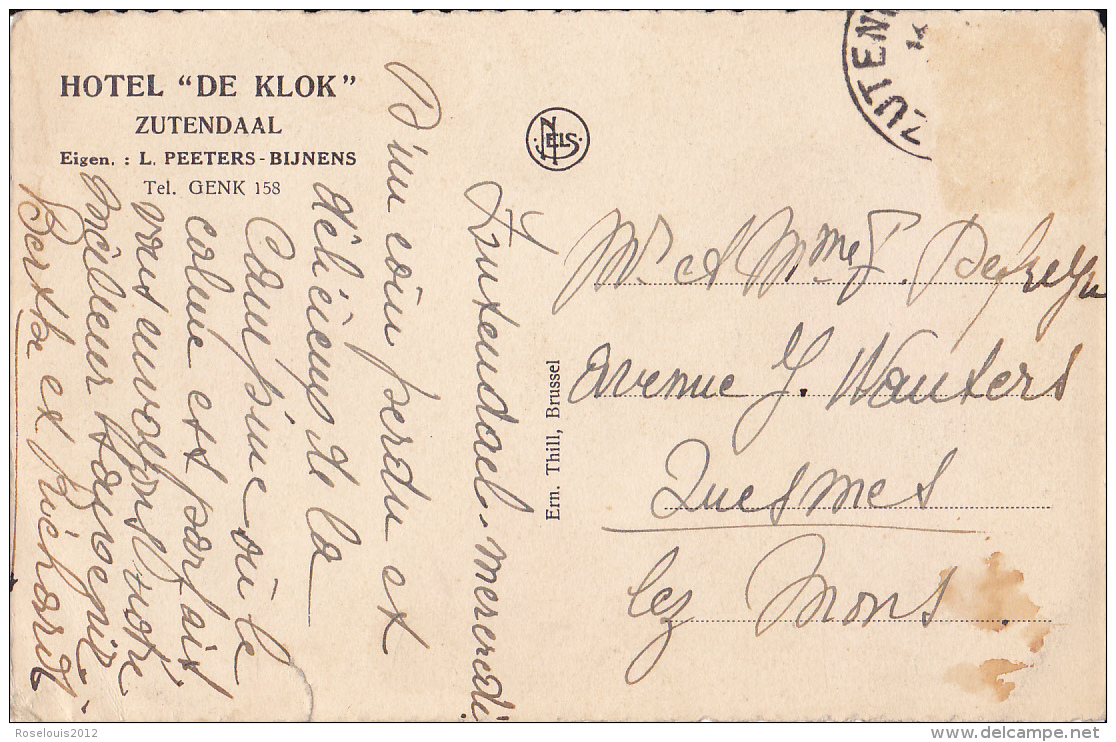 HOTEL "DE KLOK"
ZUTENDAAL
Eigen. : L. PEETERS-BIJNENS
Tel. GENK 158
NELS
ZUTEN
Ern. Thill, Brussel
Zutendael. mercredi
D'un coin perdu et
délicieux de la
Campine où le
calme est parfait
vous envoyons notre
meilleur souvenir.
Berthe et Richard
Mr et Mme J.
Avenue J. Wauters
Quesmes
lez Mons.
Roselouis2012
delcampe.net